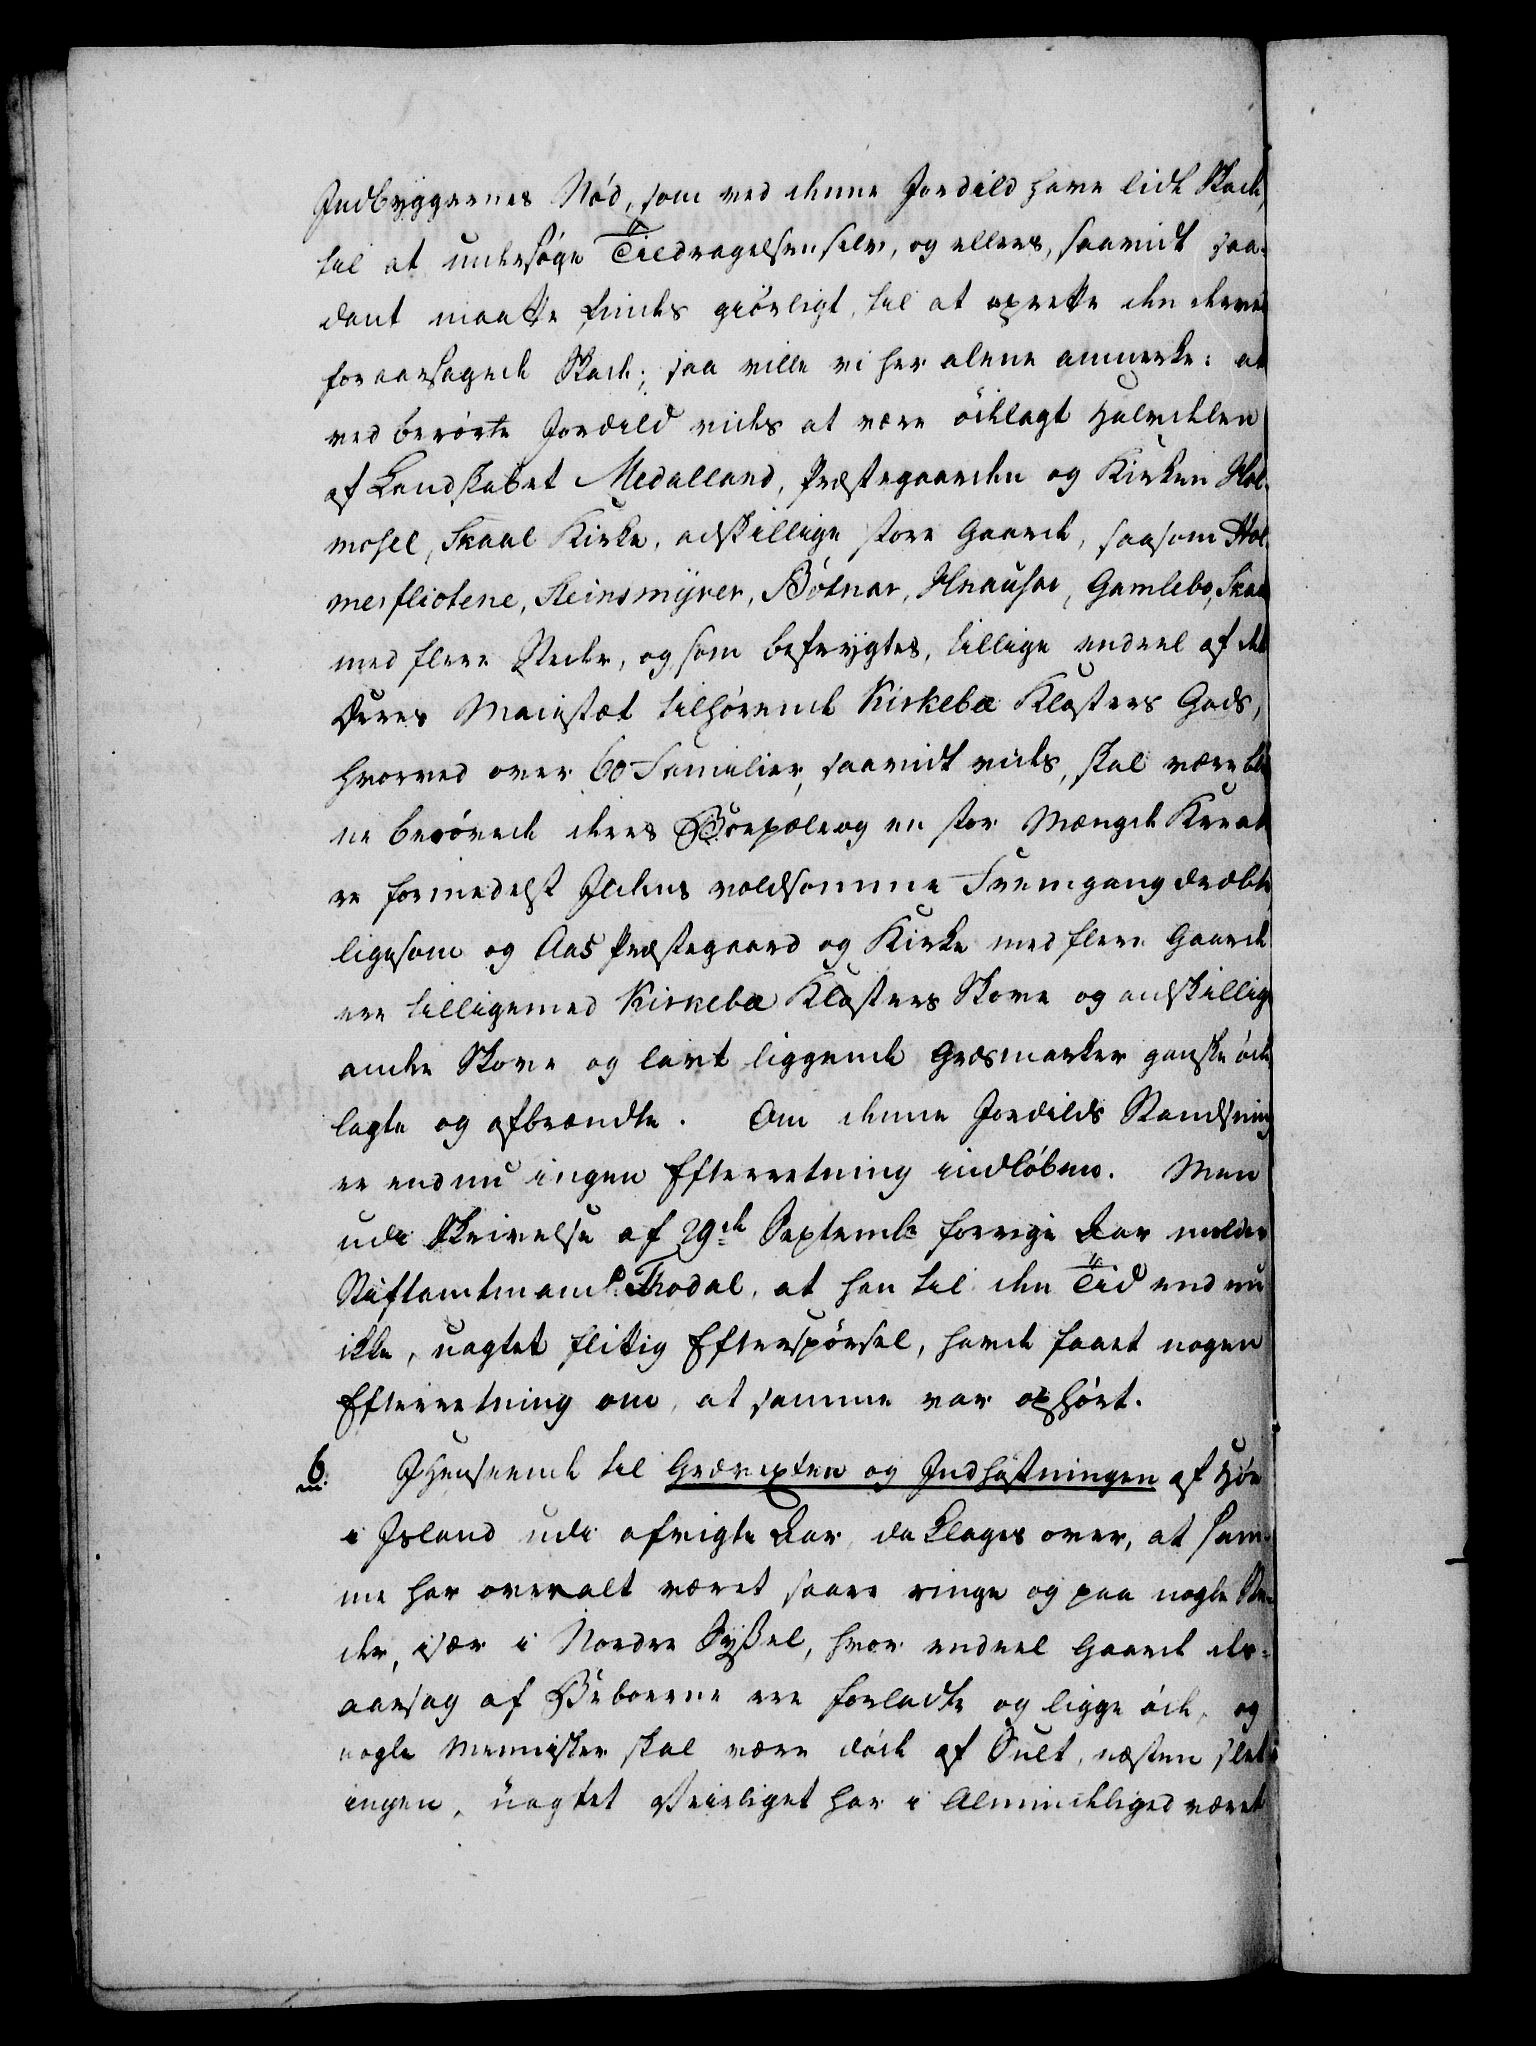 Indbyggernes Nød, som ved denne Jordild have lidt Skade,
til at undersøge Tildragelsen selv, og ellers, saavidt saa-
dant maatte findes giørligt, til at oprette den derved
foraarsagede Skade; saa ville vi her alene anmerke: at
ved berørte Jordild vides at være ödelagt Halvdelen
af Landskabet Medalland, Præstegaarden og Kirken Hol-
mosel, Skaal Kirke, adskillige store Gaarde, saasom Hol-
mesfliotene, Steinsmyrer, Bótnar, Hnausar, Gamlebo, Skaal
med flere Steder, og som befrygtes, tillige endeel af det
Deres Maiestæt tilhørende Kirkebæ Klosters Gods,
hvorved over 60 Familier, saavidt vides, skal være ble-
ne berøvede deres Boepæle og en stor Mængde Kreatu-
re formedelst Ildens voldsomme Fremgang dræbte,
ligesom og Aas Præstegaard og Kirke med flere Gaarde
ere tilligemed Kirkebæ Klosters Skove og adskillige
andre Skove og lavt liggende Græsmarker ganske öde-
lagte og afbrændte. Om denne Jordilds Standsning
er endnu ingen Efterretning indløben. Men
udi Skrivelse af 29de Septembr forrige Aar melder
Stiftamtmand Thodal, at han til den Tid endnu
ikke, uagtet flittig Efterspørsel, havde faaet nogen
Efterretning om, at samme var ophørt.
6. I Henseende til Grævexten og Indhøstningen af Høe
i Island udi afvigte Aar, da klages over, at sam-
me har overalt været saare ringe og paa nogle Ste-
der, især i Nordre Syßel, hvor endeel Gaarde der-
aarsag af Beboerne ere forladte og ligge øde, og
nogle Mennisker skal være døde af Sult, næsten slet
ingen, uagtet Veirliget har i Almindelighed været